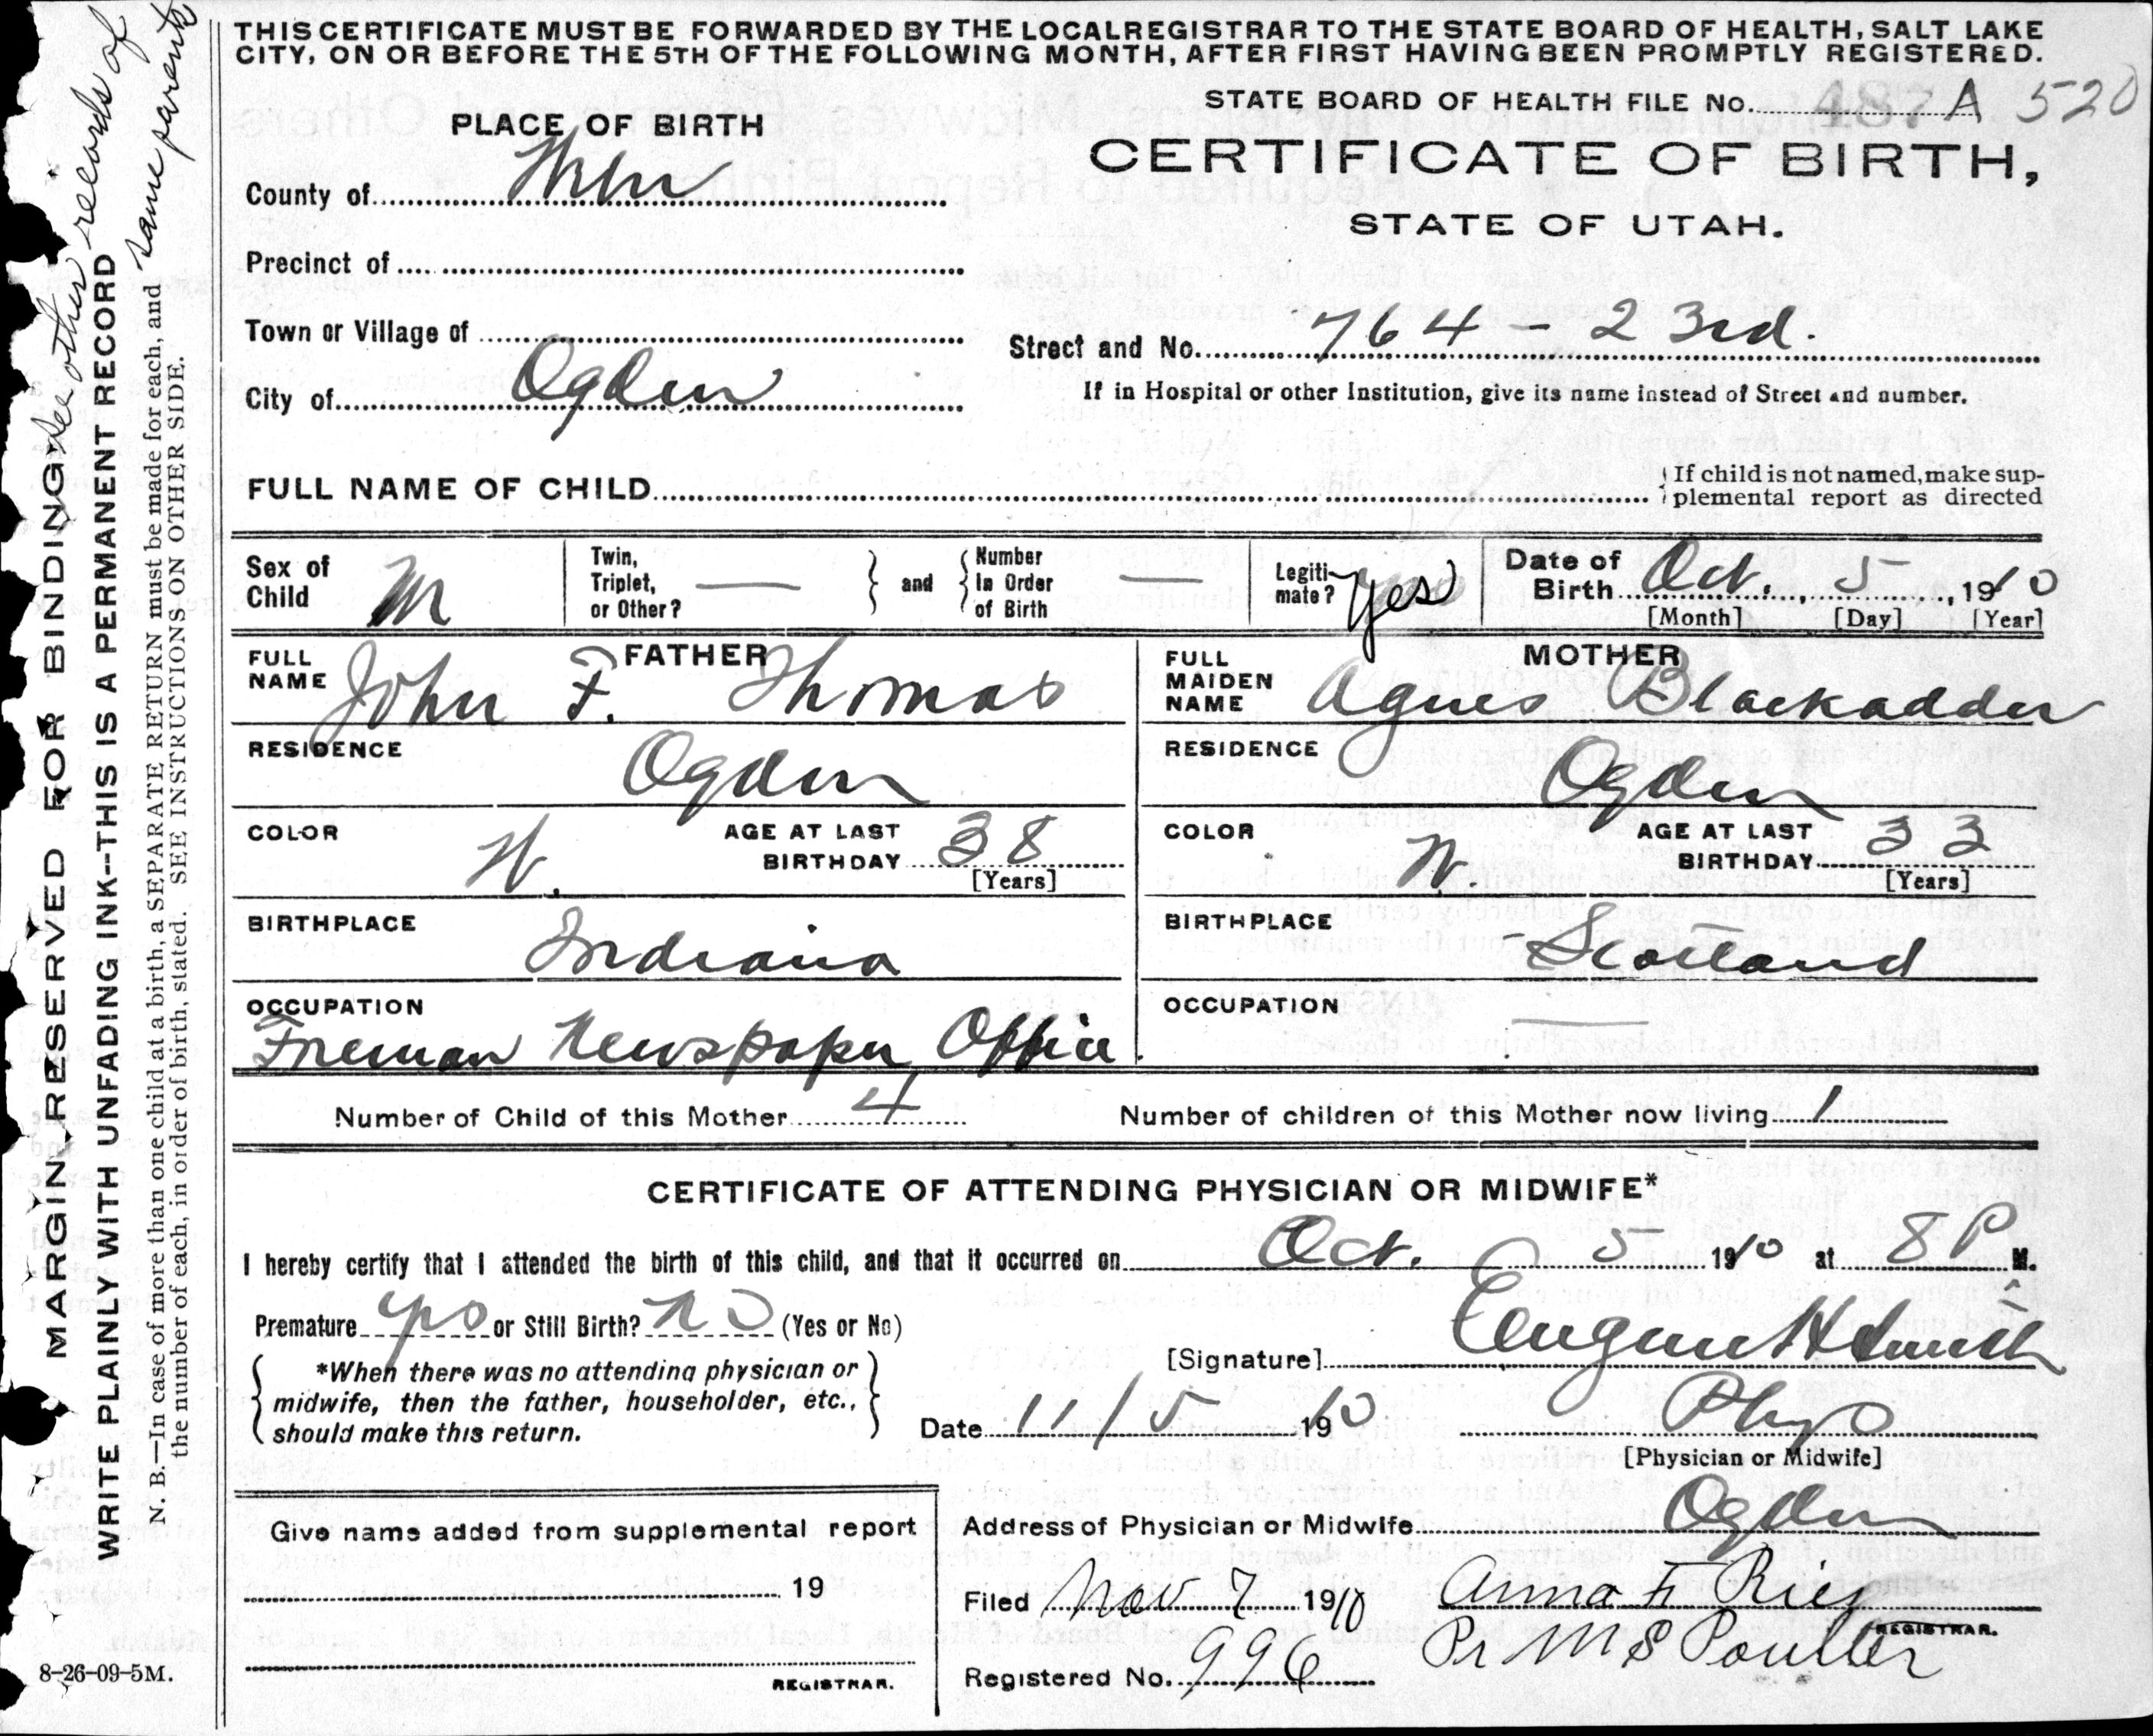 THIS CERTIFICATE MUST BE FORWARDED BY THE LOCAL REGISTRAR TO THE STATE BOARD OF HEALTH, SALT LAKE
CITY, ON OR BEFORE THE 5TH OF THE FOLLOWING MONTH, AFTER FIRST HAVING BEEN PROMPTLY REGISTERED.
STATE BOARD OF HEALTH FILE No. 487 A 520
PLACE OF BIRTH
CERTIFICATE OF BIRTH,
STATE OF UTAH.
County of Weber
Precinct of
Town or Village of
Street and No. 764 - 23rd.
City of Ogden
If in Hospital or other Institution, give its name instead of Street and number.
FULL NAME OF CHILD
If child is not named, make sup-
plemental report as directed
Sex of Child M
Twin, Triplet, or Other? —
and
Number In Order of Birth —
Legiti-mate? yes
Date of Birth Oct. 5, 1910
[Month] [Day] [Year]
FATHER
FULL NAME John F. Thomas
MOTHER
FULL MAIDEN NAME Agnes Blackadder
RESIDENCE Ogden
RESIDENCE Ogden
COLOR W. AGE AT LAST BIRTHDAY 38 [Years]
COLOR W. AGE AT LAST BIRTHDAY 33 [Years]
BIRTHPLACE Indiana
BIRTHPLACE Scotland
OCCUPATION Foreman Newspaper Office
OCCUPATION —
Number of Child of this Mother 4
Number of children of this Mother now living 1
CERTIFICATE OF ATTENDING PHYSICIAN OR MIDWIFE*
I hereby certify that I attended the birth of this child, and that it occurred on Oct. 5 1910 at 8 P M.
Premature yes or Still Birth? no (Yes or No)
*When there was no attending physician or
midwife, then the father, householder, etc.,
should make this return.
[Signature] Eugene H Smith
Date 11/5 1910
Phys
[Physician or Midwife]
Give name added from supplemental report
19
REGISTRAR.
Address of Physician or Midwife Ogden
Filed Nov 7 1910
Anna F Ries
REGISTRAR.
Pr M S Poulter
Registered No. 996
8-26-09-5M.
See other records of
same parents
MARGIN RESERVED FOR BINDING
WRITE PLAINLY WITH UNFADING INK--THIS IS A PERMANENT RECORD
N. B.—In case of more than one child at a birth, a SEPARATE RETURN must be made for each, and
the number of each, in order of birth, stated. SEE INSTRUCTIONS ON OTHER SIDE.